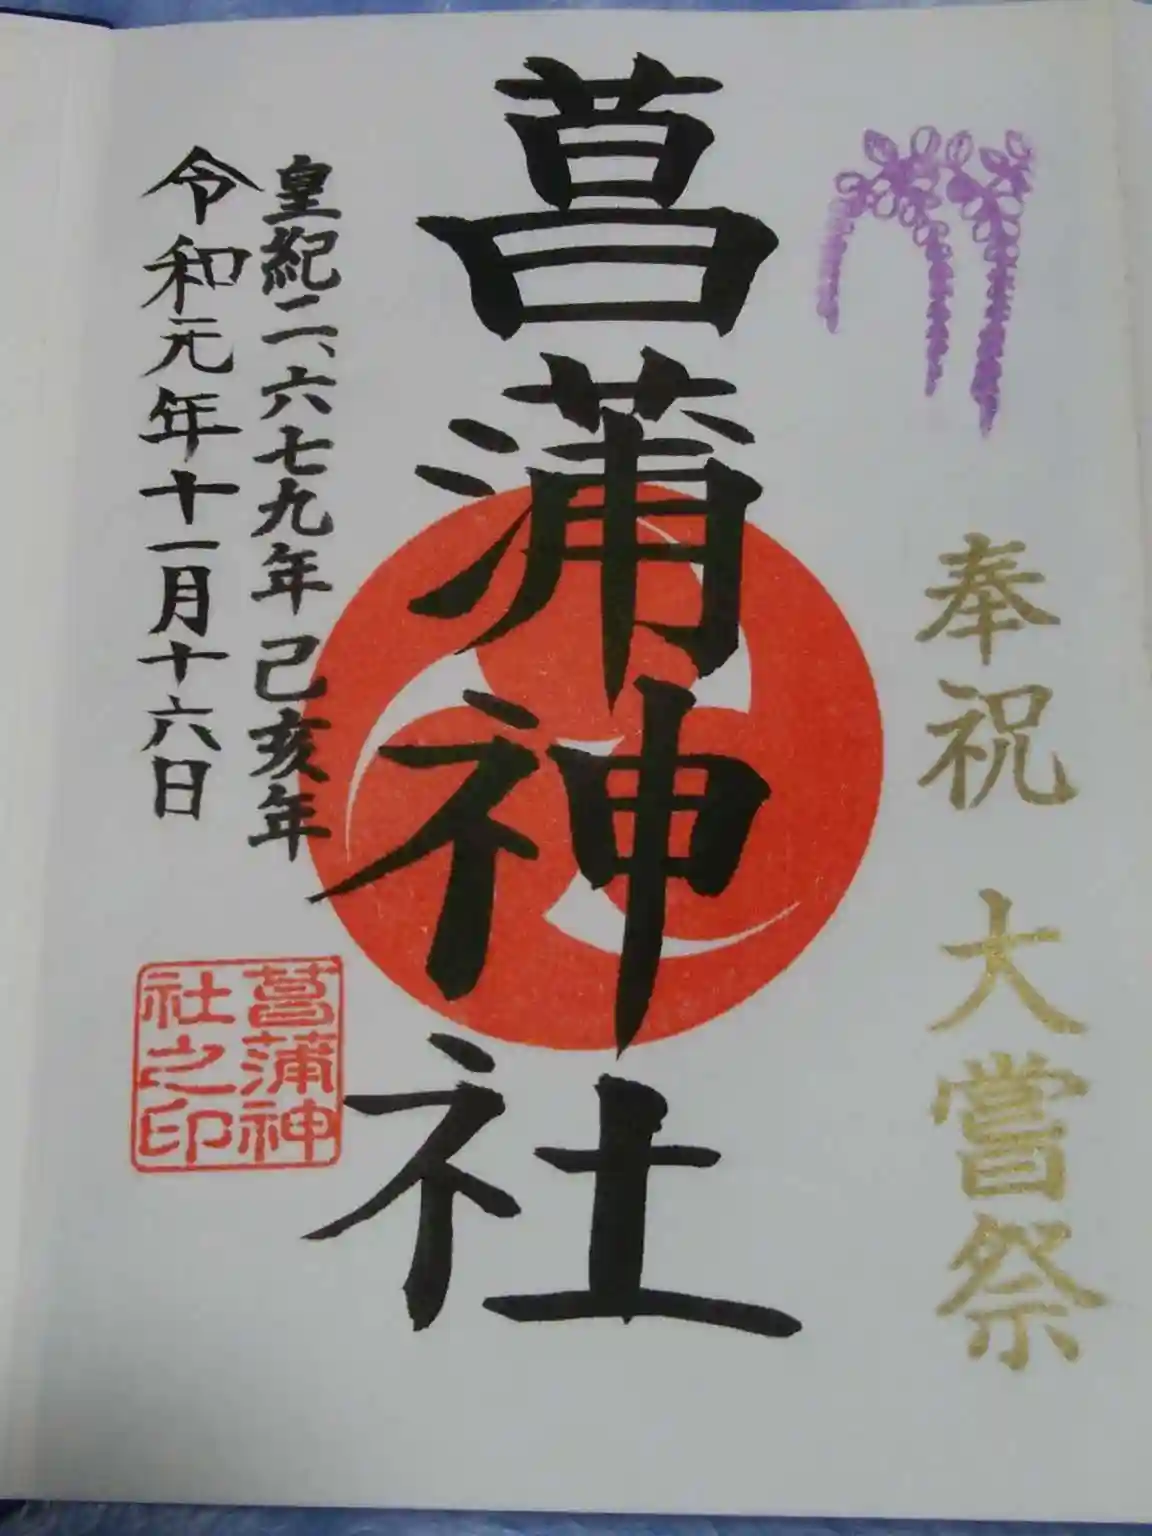 奉祝 大嘗祭
菖蒲神社
皇紀二、六七九年己亥年
令和元年十一月十六日
菖蒲神
社之印